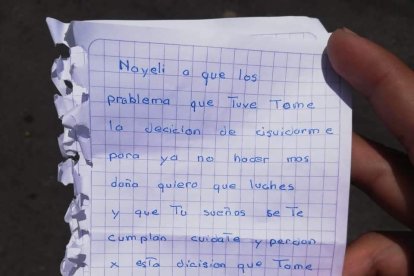 Nayeli a que los
problema que Tuve Tome
la decicion de cisuidarme
para ya no hacer mas
daño quiero que luches
y que Tu sueños se Te
cumplan cuidate y perdon
x esta dicision que Tome